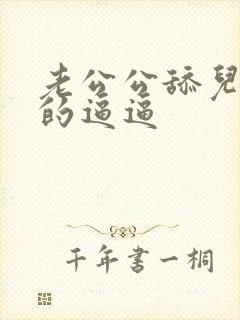 老公公舔兒
的逼逼
千年書一桐